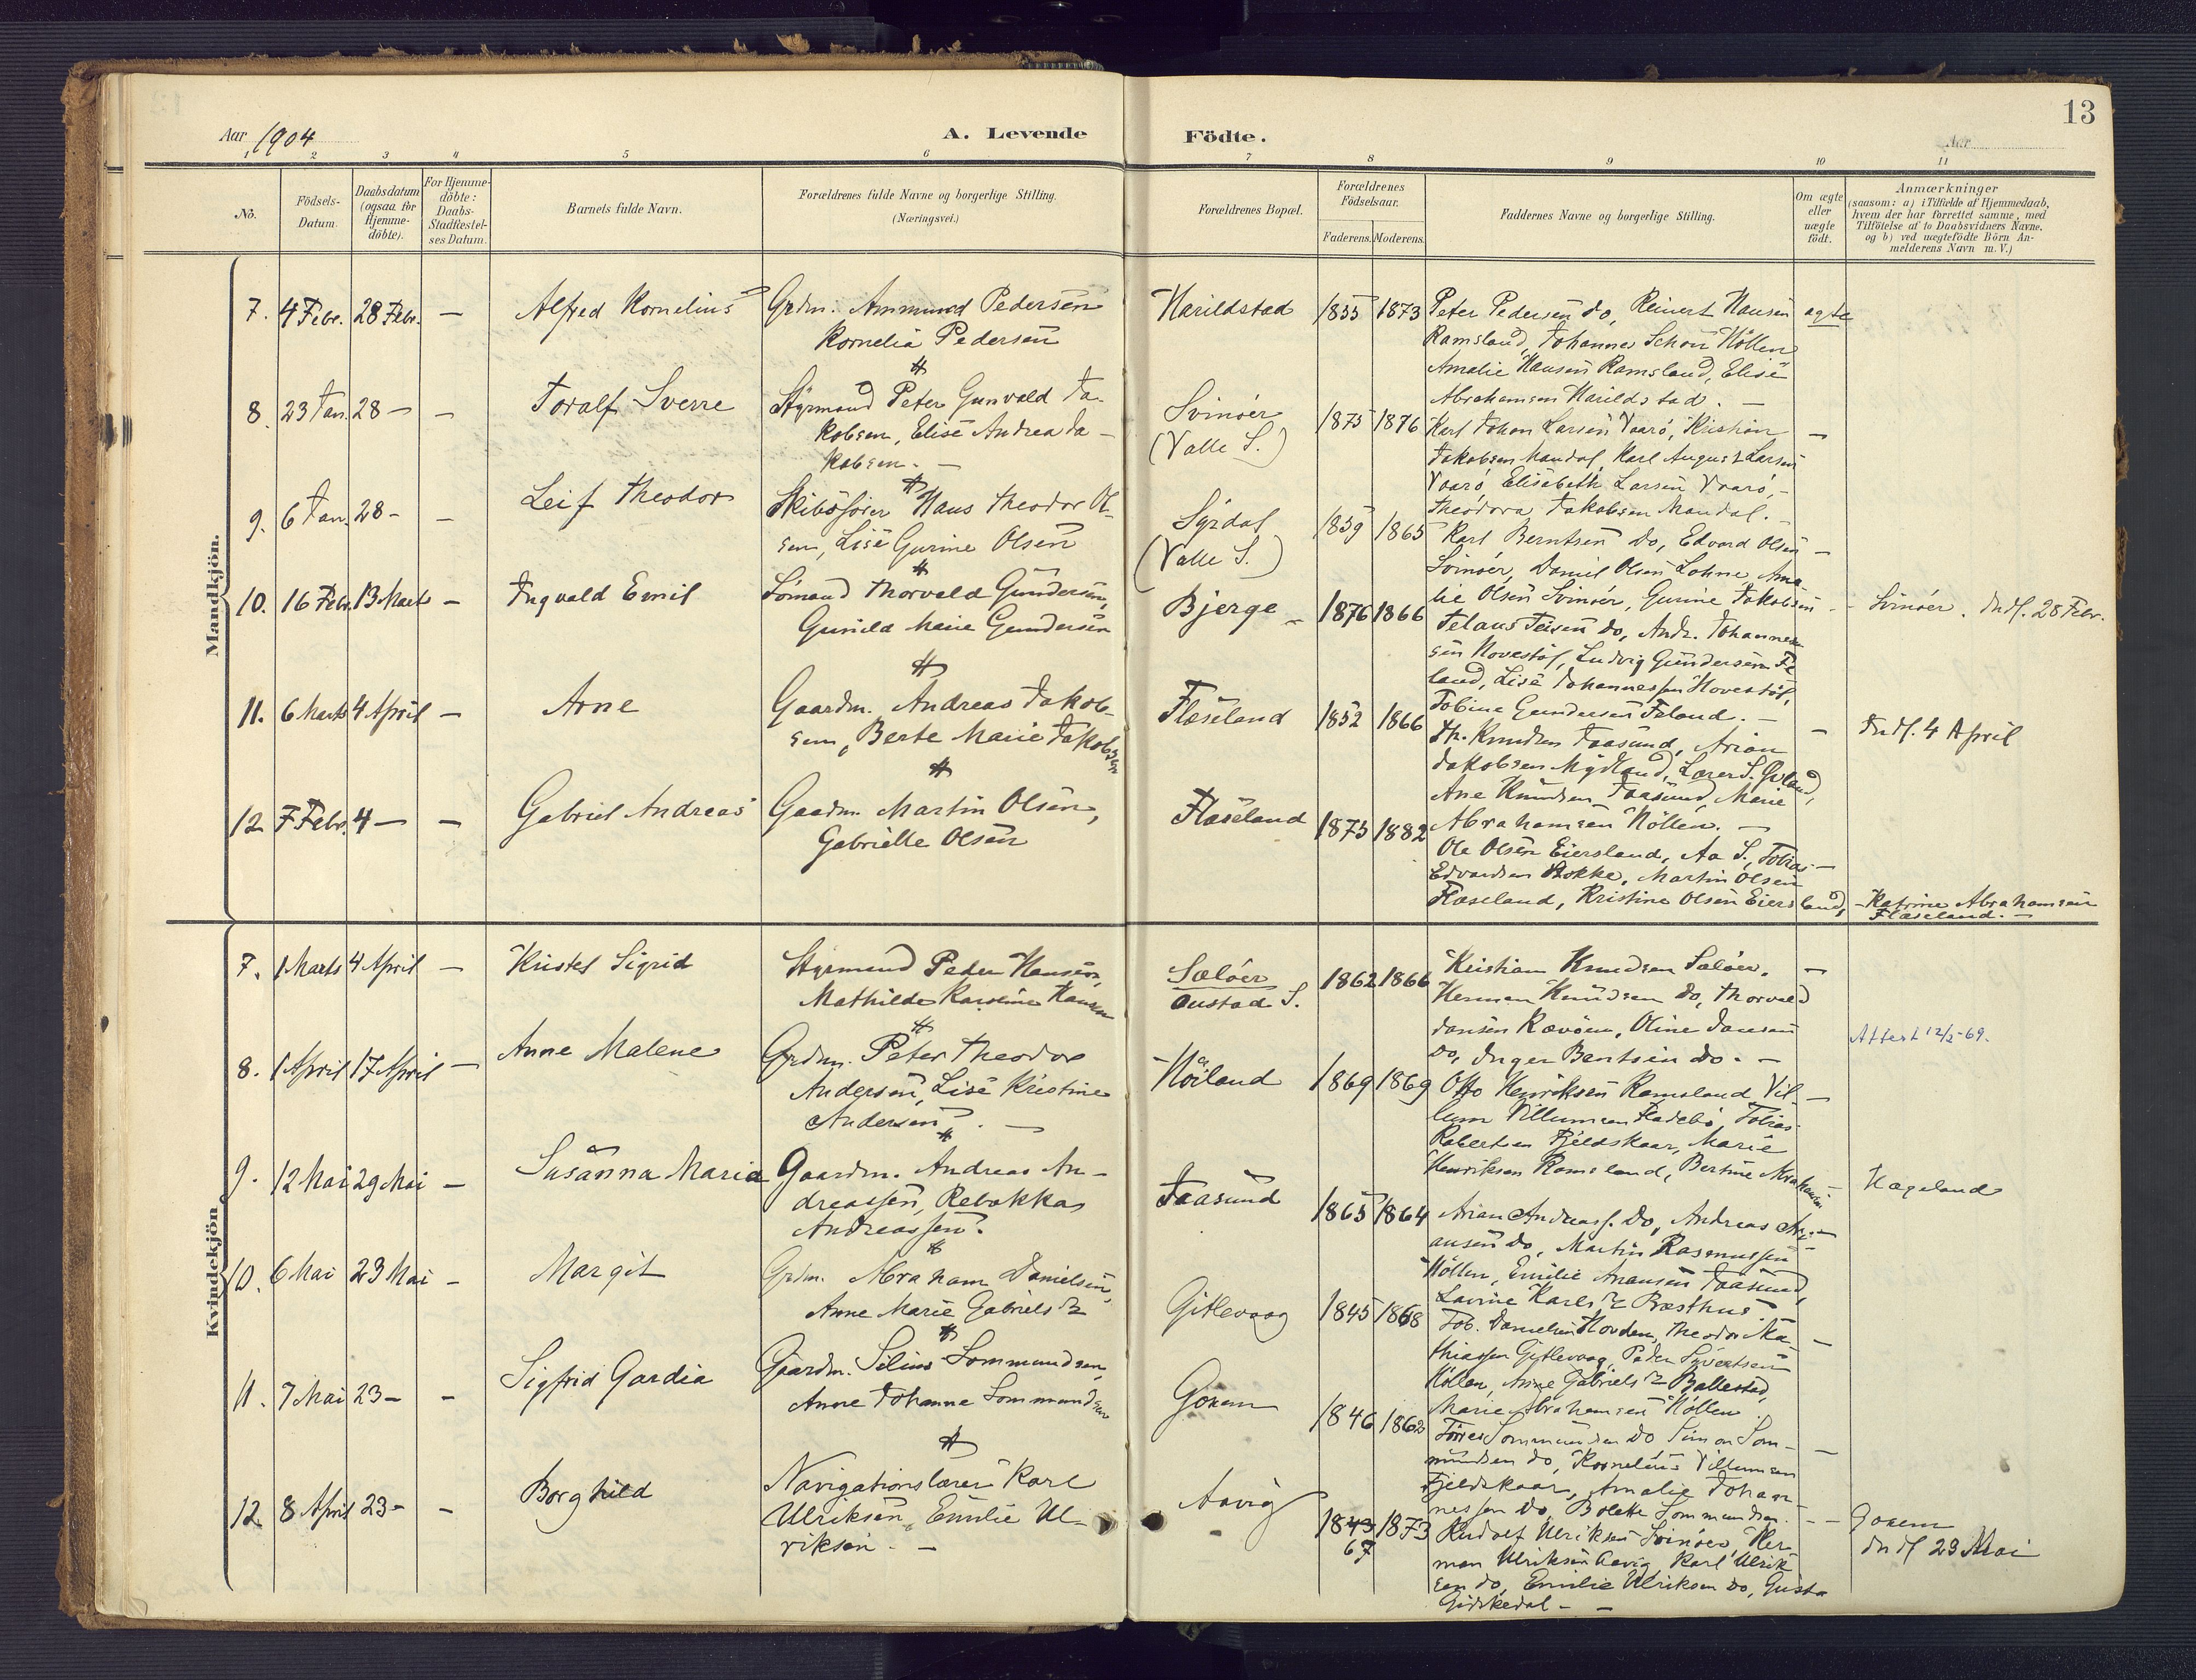 13
Aar 1904
A. Levende Födte.
Aar
1 2 3 4 5 6 7 8 9 10 11
No.
Födsels-
Datum.
Daabsdatum
(ogsaa for
Hjemme-
döbte).
For Hjemme-
döbte:
Daabs-
Stadfæstel-
ses Datum.
Barnets fulde Navn.
Forældrenes fulde Navne og borgerlige Stilling.
(Næringsvei.)
Forældrenes Bopæl.
Forældrenes
Födselsaar.
Faderens. Moderens.
Faddernes Navne og borgerlige Stilling.
Om ægte
eller
uægte
födt.
Anmærkninger
(saasom: a) i Tilfælde af Hjemmedaab,
hvem der har forrettet samme, med
Tilföielse af to Daabsvidners Navne,
og b) ved uægtefödte Börn An-
melderens Navn m. V.)
Mandkjön.
7. 4 Febr. 28 Febr. — Alfred Kornelius
Grdm. Ammund Pedersen
Kornelia Pedersen
Harildstad 1855 1873
Peter Pedersen do, Reinert Hansen
Ramsland, Johannes Schou Höllen
Amalie Hansen Ramsland, Elise
Abrahamsen Harildstad. —
ægte
8. 23 Jan. 28 — — Toralf Sverre
Styrmand Peter Gunvald Ja-
kobsen, Elise Andrea Ja-
kobsen. —
Svinöer
(Valle S.)
1875 1876
Karl Johan Larsen Vaarö, Kristian
Jakobsen Mandal, Karl August Larsen
Vaarö, Elisabeth Larsen Vaarö, -
Theodora Jakobsen Mandal. —
—
9. 6 Jan. 28 - — Leif Theodor
Skibsförer Hans Theodor Ol-
sen, Lise Gurine Olsen
Syrdal
(Valle S.)
1859 1865
Karl Berntsen do, Edvard Olsen
Svinöer, Daniel Olsen Lohne, Ama-
lie Olsen Svinöer, Gurine Jakobsen
—
- Svinöer. Indf. 28 Febr.
10. 16 Febr. 13 Marts — Ingvald Emil
Sömand Thorvald Gundersen,
Gunilda Marie Gundersen
Bjerge - 1876 1866
do, Andr. Johannes-
sen Hovestöl, Ludvig Gundersen Fe-
land, Lise Johannessen Hovestöl,
Tobine Gundersen Feland. —
11. 6 Marts 4 April — Arne
Gaardm. Andreas Jakob-
sen, Berte Marie Jakobsen
Flæseland 1852 1866
Th. Knudsen Taasund, Arian
Jakobsen Mydland, Lærer S. Övland,
Ane Knudsen Taasund, Marie
Abrahamsen Höllen. —
—
Indf. 4 April
12. 7 Febr. 4 — — Gabriel Andreas
Gaardm. Martin Olsen,
Gabrielle Olsen
Flæseland 1875 1882
Ole Olsen Eiersland, Aa S., Tobias
Edvardsen Stokke, Martin Olsen
Flæseland, Kristine Olsen Eiersland,
—
- Katrine Abrahamsen
Flæseland. —
Kvindekjön.
7. 1 Marts 4 April — Kristel Sigrid
Styrmand Peder Hansen,
Mathilde Karoline Hansen
Sælöer
Oustad S.
1862 1866
Kristian Knudsen Sælöer,
Herman Knudsen do, Thorvald
Jansen Rævöen, Oline Jansen
do, Inger Bentsen do. —
—
8. 1 April 17 April — Anne Malene
Grdm. Peter Theodor
Andersen, Lise Kristine
Andersen. —
Höiland 1869 1869
Otto Henriksen Ramsland, Vil-
lum Villumsen Fladebö, Tobias
Robertsen Fjeldskaar, Marie
Henriksen Ramsland, Bertine Abrahamsen
—
Attest 12/2-69.
- Hageland
9. 12 Mai 29 Mai — Susanna Maria
Gaardm. Andreas An-
dreassen, Rebekka
Andreassen.
Taasund 1865 1864
Arian Andreass. do, Andreas Ari-
ansen do, Martin Rasmussen
Höllen, Emilie Ariansen Taasund,
Lavine Karls Præsthus.
—
10. 6 Mai 23 Mai — Margit
Grdm. Abraham Danielsen,
Anne Marie Gabriels
Gitlevaag 1845 1868
Tob. Danielsen Hovden, Theodor Ma-
thiassen Gitlevaag, Peder Syvertsen
Höllen, Anne Gabriels Ballestad,
Marie Abrahamsen Höllen.
—
11. 7 Mai 23 — — Sigfrid Gardia
Gaardm. Selius Sommundsen,
Anne Johanne Sommundsen
Goxem 1846 1862
Törres Sommundsen do, Simon Som-
mundsen do, Kornelius Villumsen
Fjeldskaar, Amalie Johan-
nessen do, Bolette Sommundsen.
—
- - Goxem
Indf 23 Mai
12. 8 April 23 - — Borghild
Navigationslærer Karl
Ulriksen, Emilie Ul-
riksen. —
Aavig 1843 1873
67
Rudolf Ulriksen Svinöer, Her-
man Ulriksen Aavig, Karl Ulrik-
sen do, Emilie Ulriksen do, Gusta
Gidskedal - —